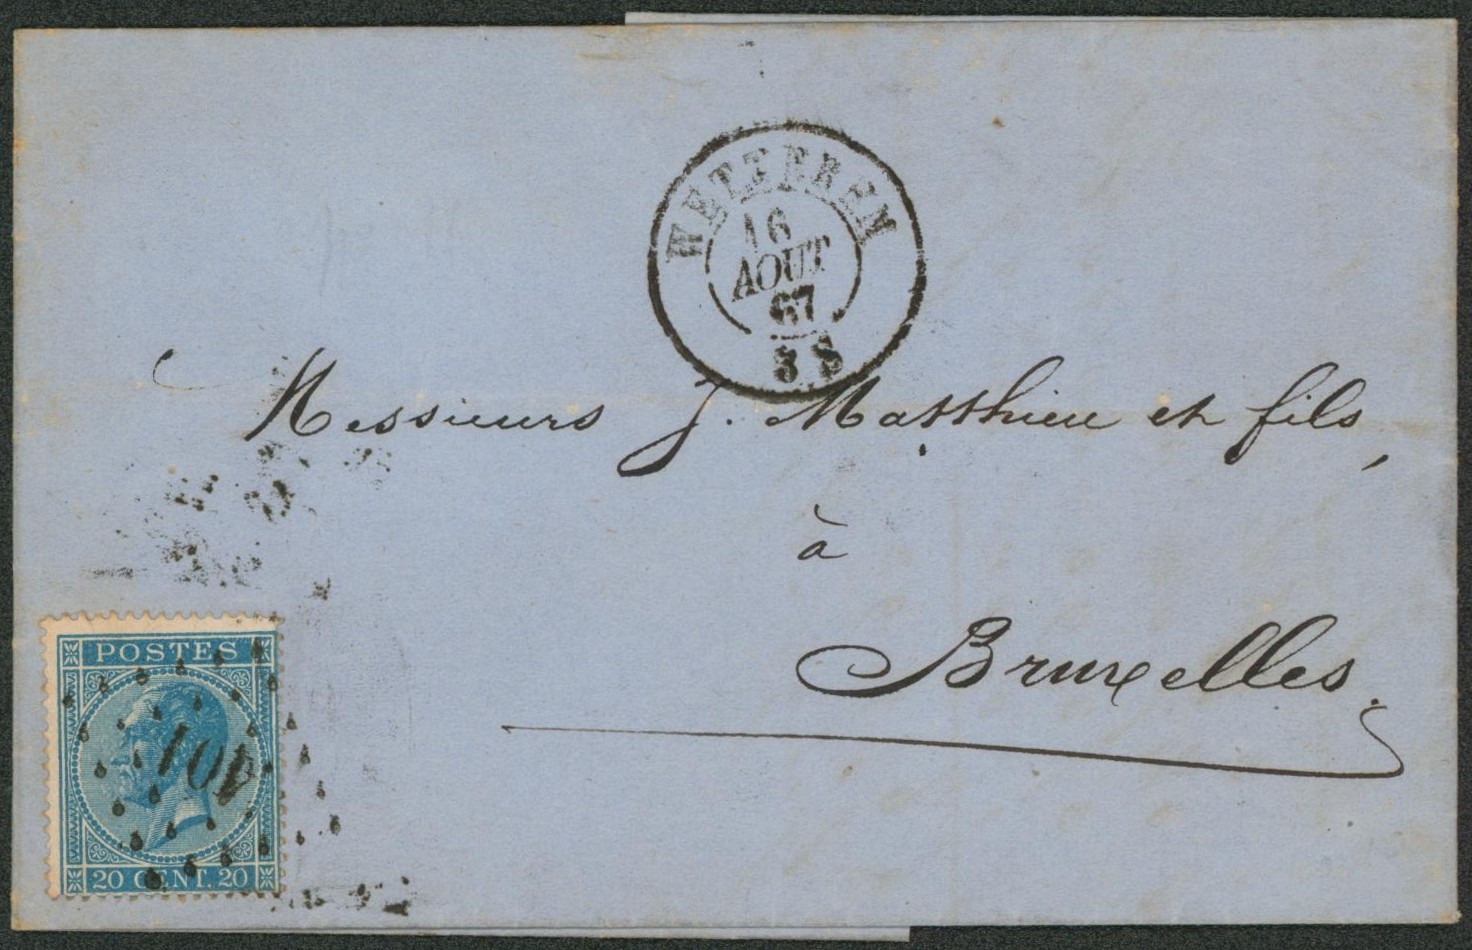 WETTEREN
16
AOUT
67
8 S
Messieurs J. Matthieu et fils,
à
Bruxelles.
POSTES
401
20 CENT. 20